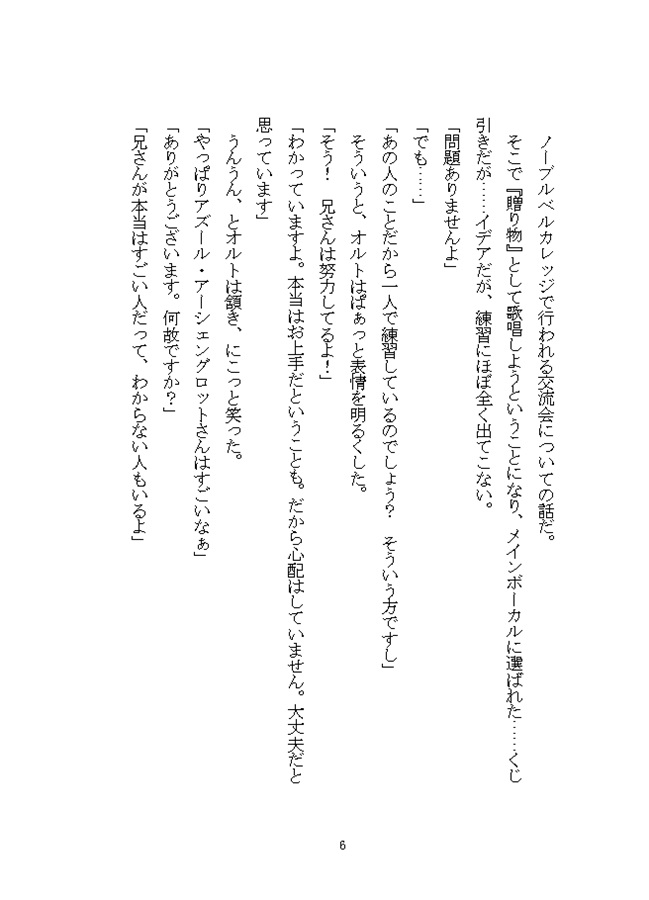 ノーブルベルカレッジで行われる交流会についての話だ。
　そこで『贈り物』として歌唱しようということになり、メインボーカルに選ばれた……くじ
引きだが……イデアだが、練習にほぼ全く出てこない。
「問題ありませんよ」
「でも……」
「あの人のことだから一人で練習しているのでしょう？　そういう方ですし」
　そういうと、オルトはぱぁっと表情を明るくした。
「そう！　兄さんは努力してるよ！」
「わかっていますよ。本当はお上手だということも。だから心配はしていません。大丈夫だと
思っています」
　うんうん、とオルトは頷き、にこっと笑った。
「やっぱりアズール・アーシェングロットさんはすごいなぁ」
「ありがとうございます。何故ですか？」
「兄さんが本当はすごい人だって、わからない人もいるよ」
6